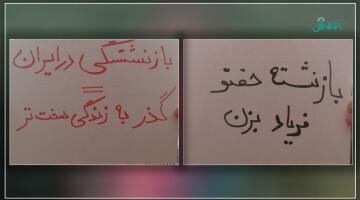 بازنشستگی در ایران
=
گذر به زندگی سخت تر
بازنشته حقتو
فریاد بزن